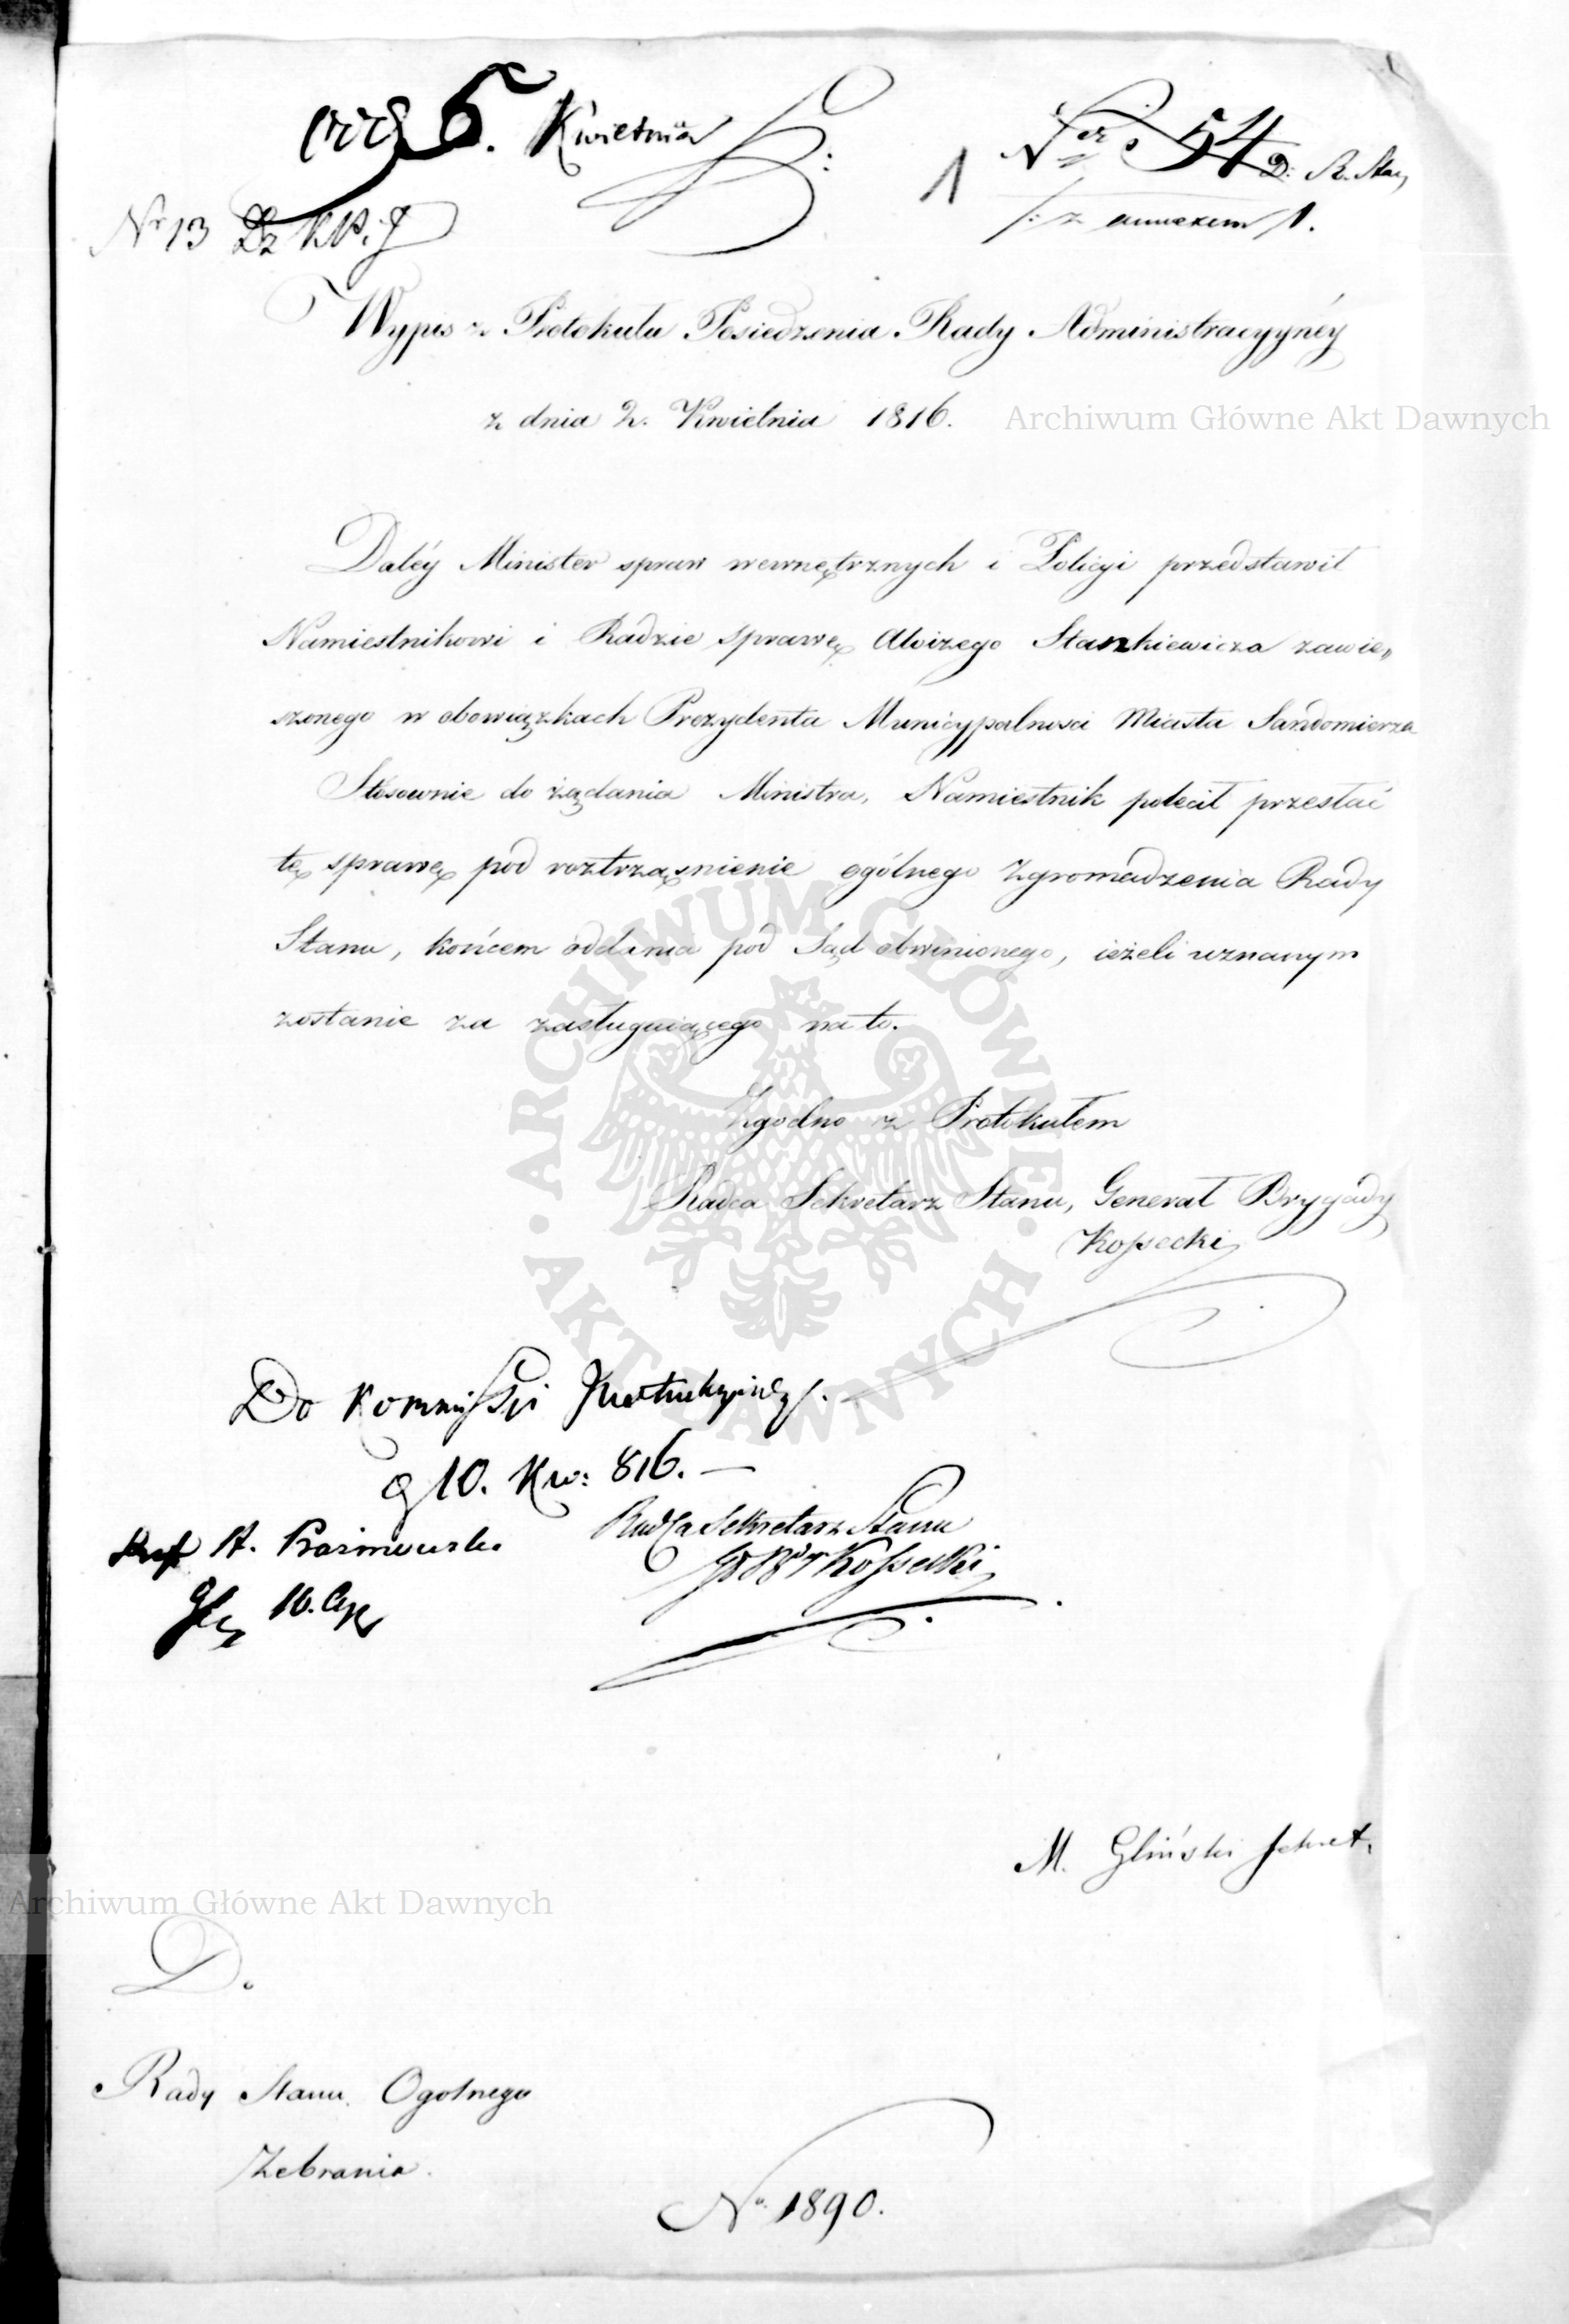 5. Kwietnia
1
Nro 54 D: R. Stanu
/: z annexem /1.
Nr 13 Dz K.P.J
Wypis z Protokułu Posiedzenia Rady Administracyynéy
z dnia 2. Kwietnia 1816.
Archiwum Główne Akt Dawnych
Daléy Minister spraw wewnętrznych i Policyi przedstawił
Namiestnikowi i Radzie sprawę Aloizego Stankiewicza zawie„
szonego w obowiązkach Prezydenta Municypalnosci Miasta Sandomierza
Stosownie do żądania Ministra, Namiestnik polecił przesłać
tę sprawę pod roztrząśnienie ogólnego Zgromadzenia Rady
Stanu, końcem oddania pod Sąd obwinionego, ieżeli uznanym
zostanie za zasługuiącego na to.
Zgodno z Protokułem
Radca Sekretarz Stanu, Generał Brygady
Kossecki
ARCHIWUM GŁÓWNE · AKT DAWNYCH ·
Do Kommissyi Instrukcyiney.
d 10. Kw: 816. —
Radca Sekretarz Stanu
Kossecki
A. Koźmiewski
16.
M. Gliński Sekret.
Archiwum Główne Akt Dawnych
D.
Rady Stanu Ogolnego
Zebrania.
No 1890.